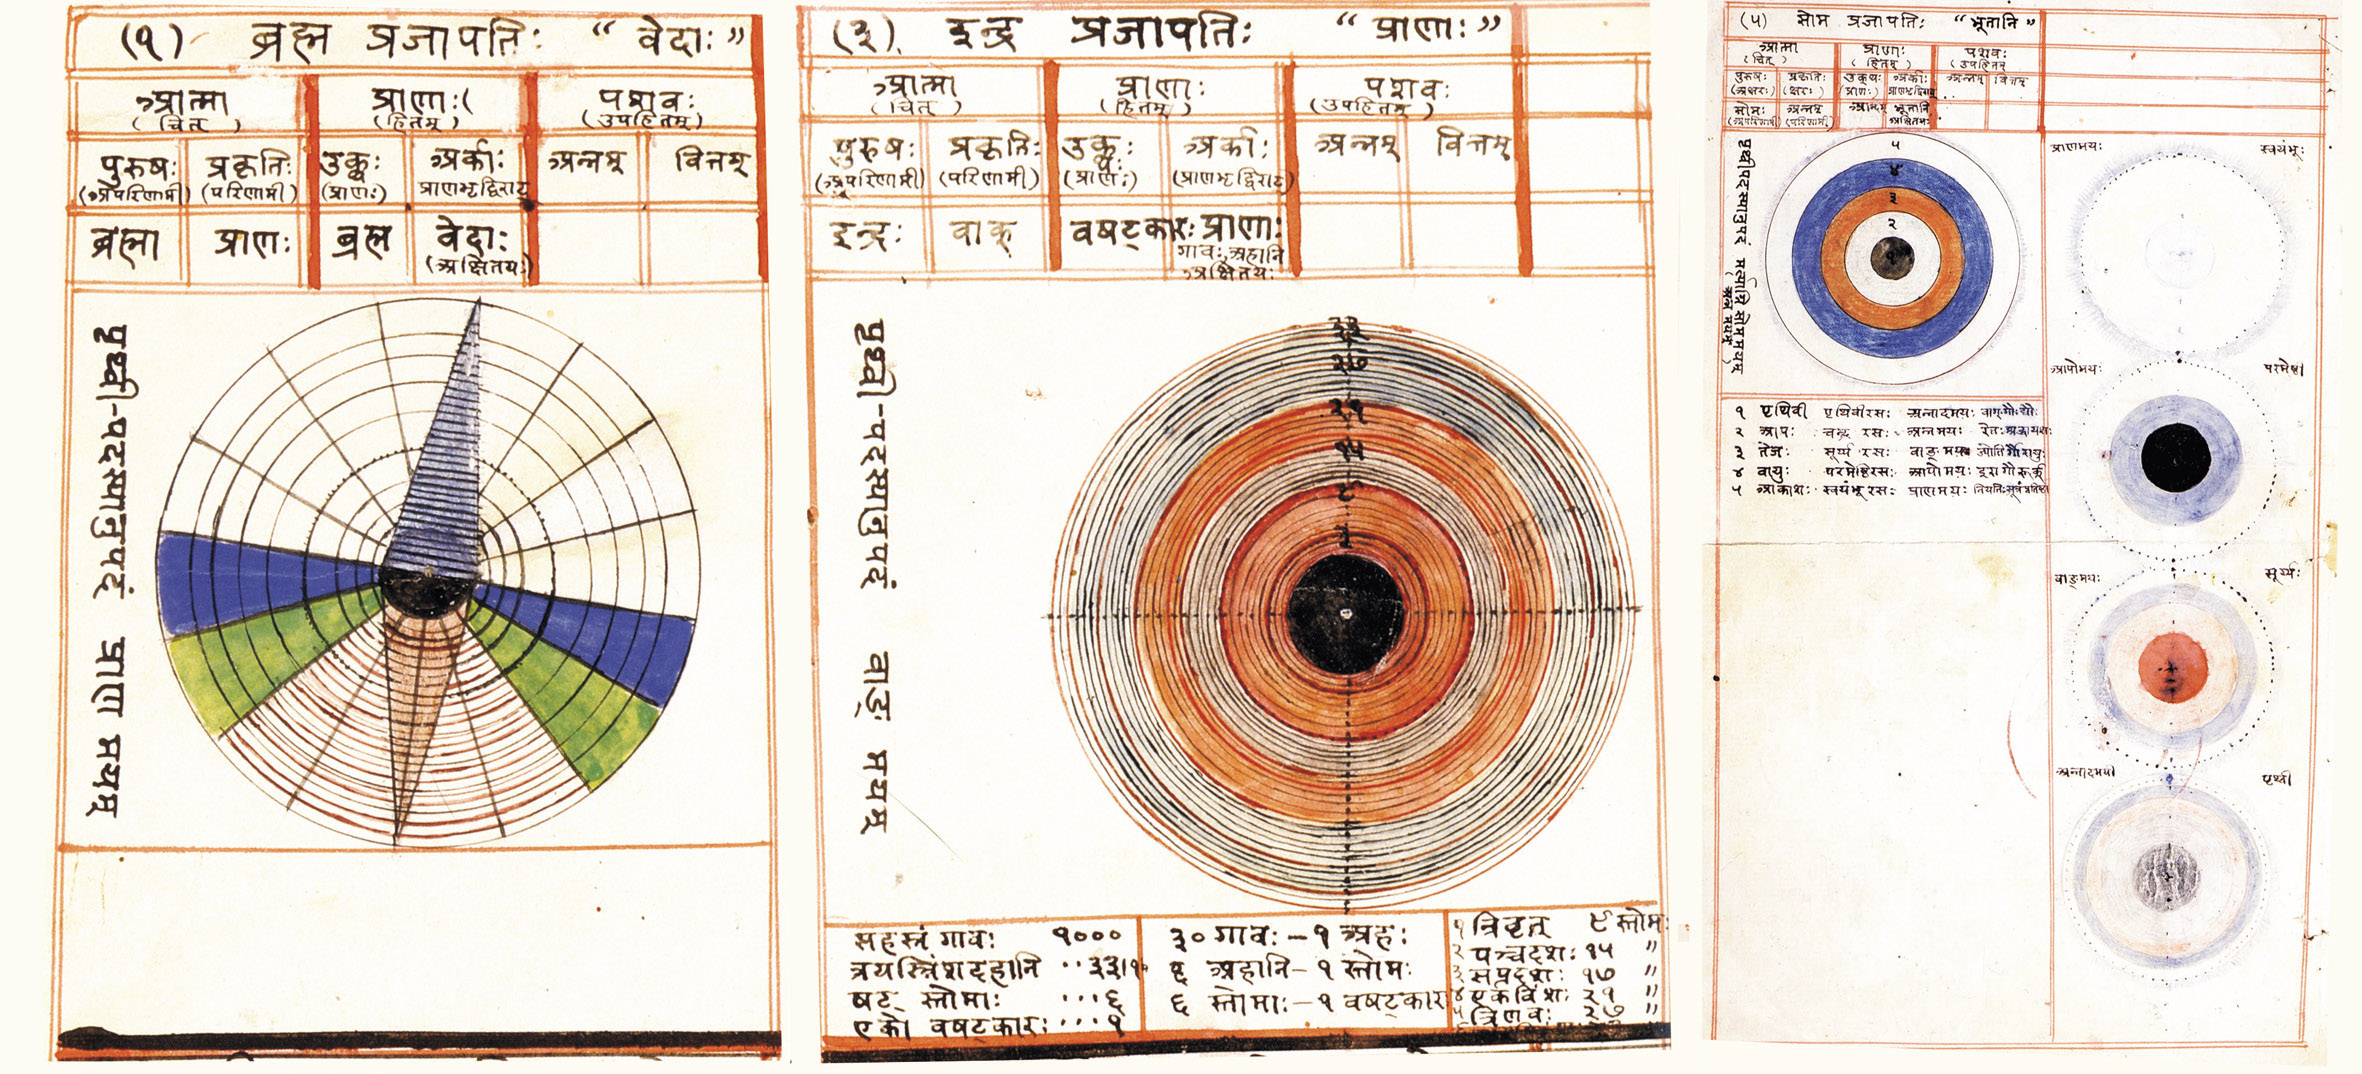 (१) ब्रह्म प्रजापतिः “वेदाः”
आत्मा प्राणाः पशवः
(चित्) (हितम्) (उपहितम्)
पुरुषः प्रकृतिः उक्थः अर्काः अन्नम् वित्तम्
(अपरिणामी) (परिणामी) (प्राणः)
ब्रह्मा प्राणः ब्रह्म वेदाः
(अक्षितयः)
पृथ्वी-पदस्यानुपदं प्राण मयम्
(३) इन्द्र प्रजापतिः “प्राणाः”
आत्मा प्राणाः पशवः
(चित्) (हितम्) (उपहितम्)
पुरुषः प्रकृतिः उक्थः अर्काः अन्नम् वित्तम्
(अपरिणामी) (परिणामी) (प्राणः)
इन्द्रः वाक् वषट्कारः प्राणाः
गावः अहानि
अक्षितयः
पृथ्वी-पदस्यानुपदं वाङ् मयम्
३३
२७
२१
१५
९
सहस्रं गावः १०००
त्रयस्त्रिंशदहानि
षट् स्तोमाः ...६
एको वषट्कारः ...१
३० गावः - १ अहः
अहानि - १ स्तोमः
६ स्तोमाः - १ वषट्कार
१ त्रिवृत् ९ स्तोमः
२ पञ्चदशः १५ ”
३ सप्तदशः १७ ”
४ एकविंशः २१ ”
५ त्रिणवः २७ ”
(५) सोम प्रजापतिः “भूतानि”
आत्मा प्राणाः पशवः
(चित्) (हितम्) (उपहितम्)
पुरुषः प्रकृतिः उक्थः अर्काः अन्नम् वित्तम्
(अक्षरः) (क्षरः) (प्राणः)
सोमः अन्नम् भूतानि
(अपरिणामी) (परिणामी)
५
४
३
२
१
१ पृथिवी पृथिवीरसः अन्नादमयः वाग् गौः द्यौः
२ आपः चन्द्र रसः अन्नमयः रेतः
३ तेजः सूर्य्य रसः ज्योतिर्गौरायुः
४ वायुः आपोमयः
५ आकाशः स्वयंभू रसः प्राणमयः
प्राणमयः स्वयंभूः
आपोमयः परमेष्ठी
वाङ्मयः सूर्य्यः
अन्नादमयी पृथ्वी